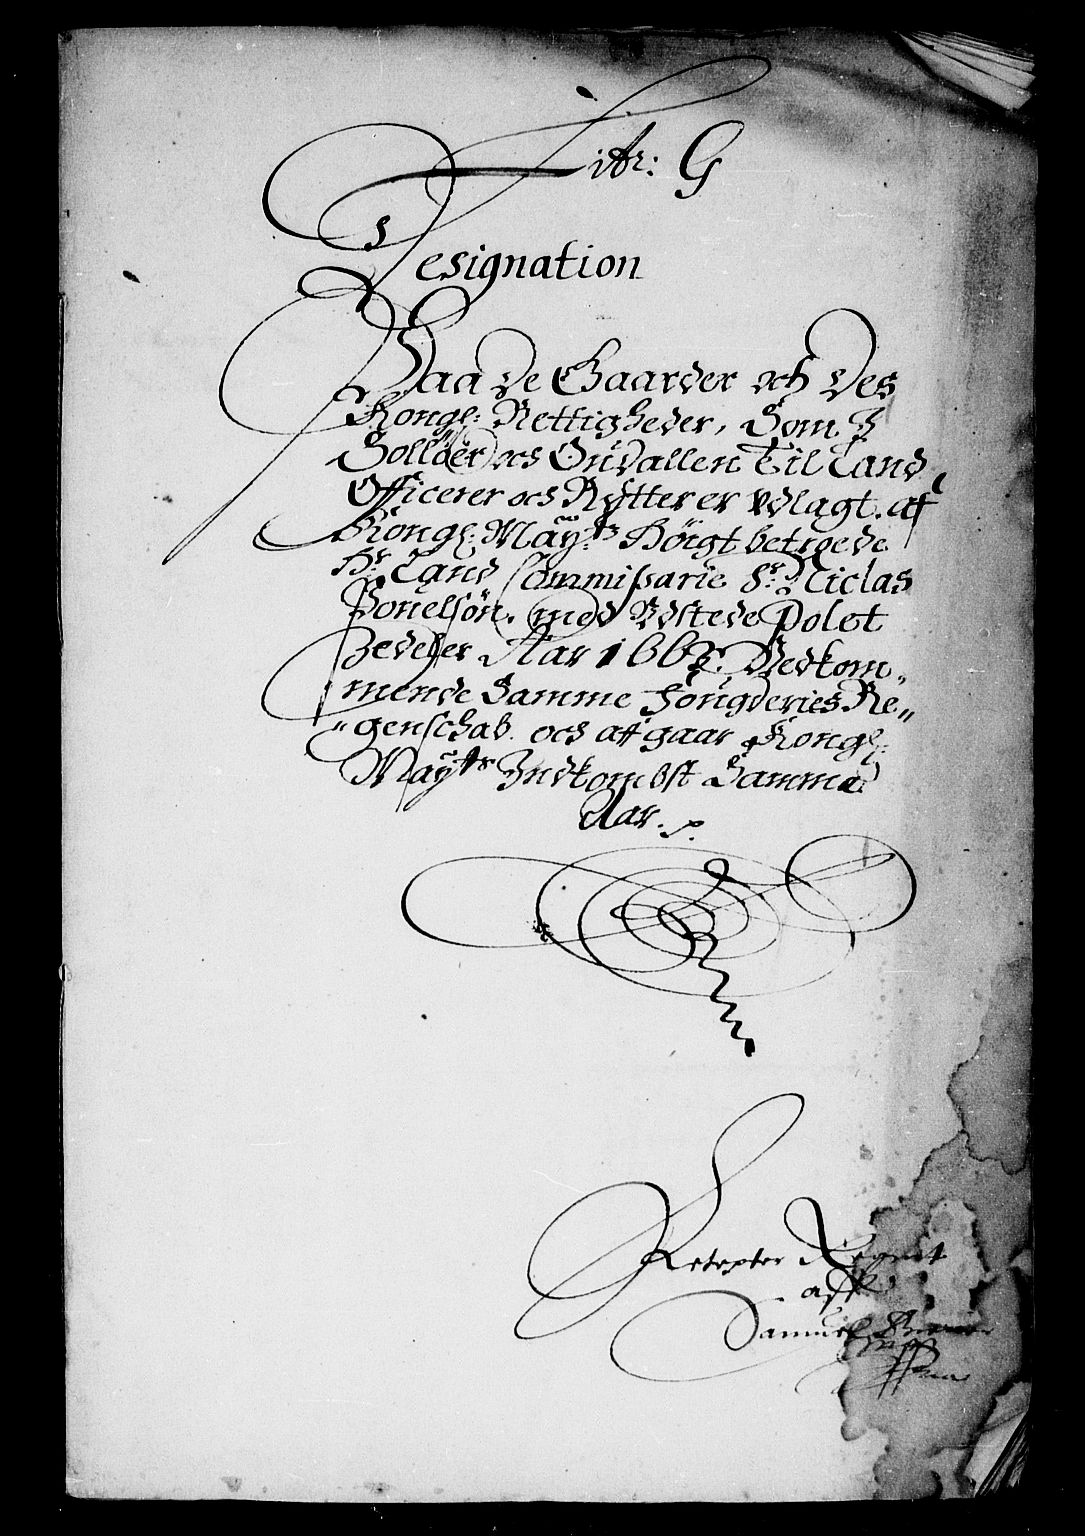 Litr: G
Designation
Paa de Gaarder och des
Kongl: Rettigheder, Som I
Solløer och Oudallen Til Land
Officerer och Rytter er Vdlagt. af
Kongl: Maytz Höigt betroede
Hr Land Commißarie Sr Niclas
Ponelsön. med Vdstede Polet
Zedeler Aar 166 Vedkom„
mende Samme fougderies Re„
„genschab. och aff gaar Kongl:
Mayts Indkombst Samme
Aar.
Retepter Regnet
aff
Samuel